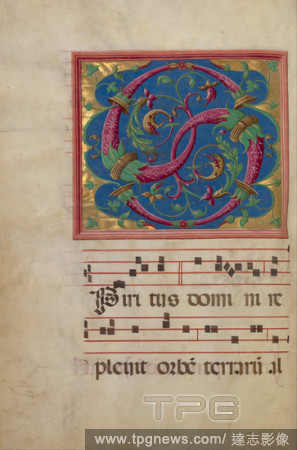 Spiri tus domi ni re
plevit orbē terrarū al
TPG
www.tpgnews.com / 達志影像